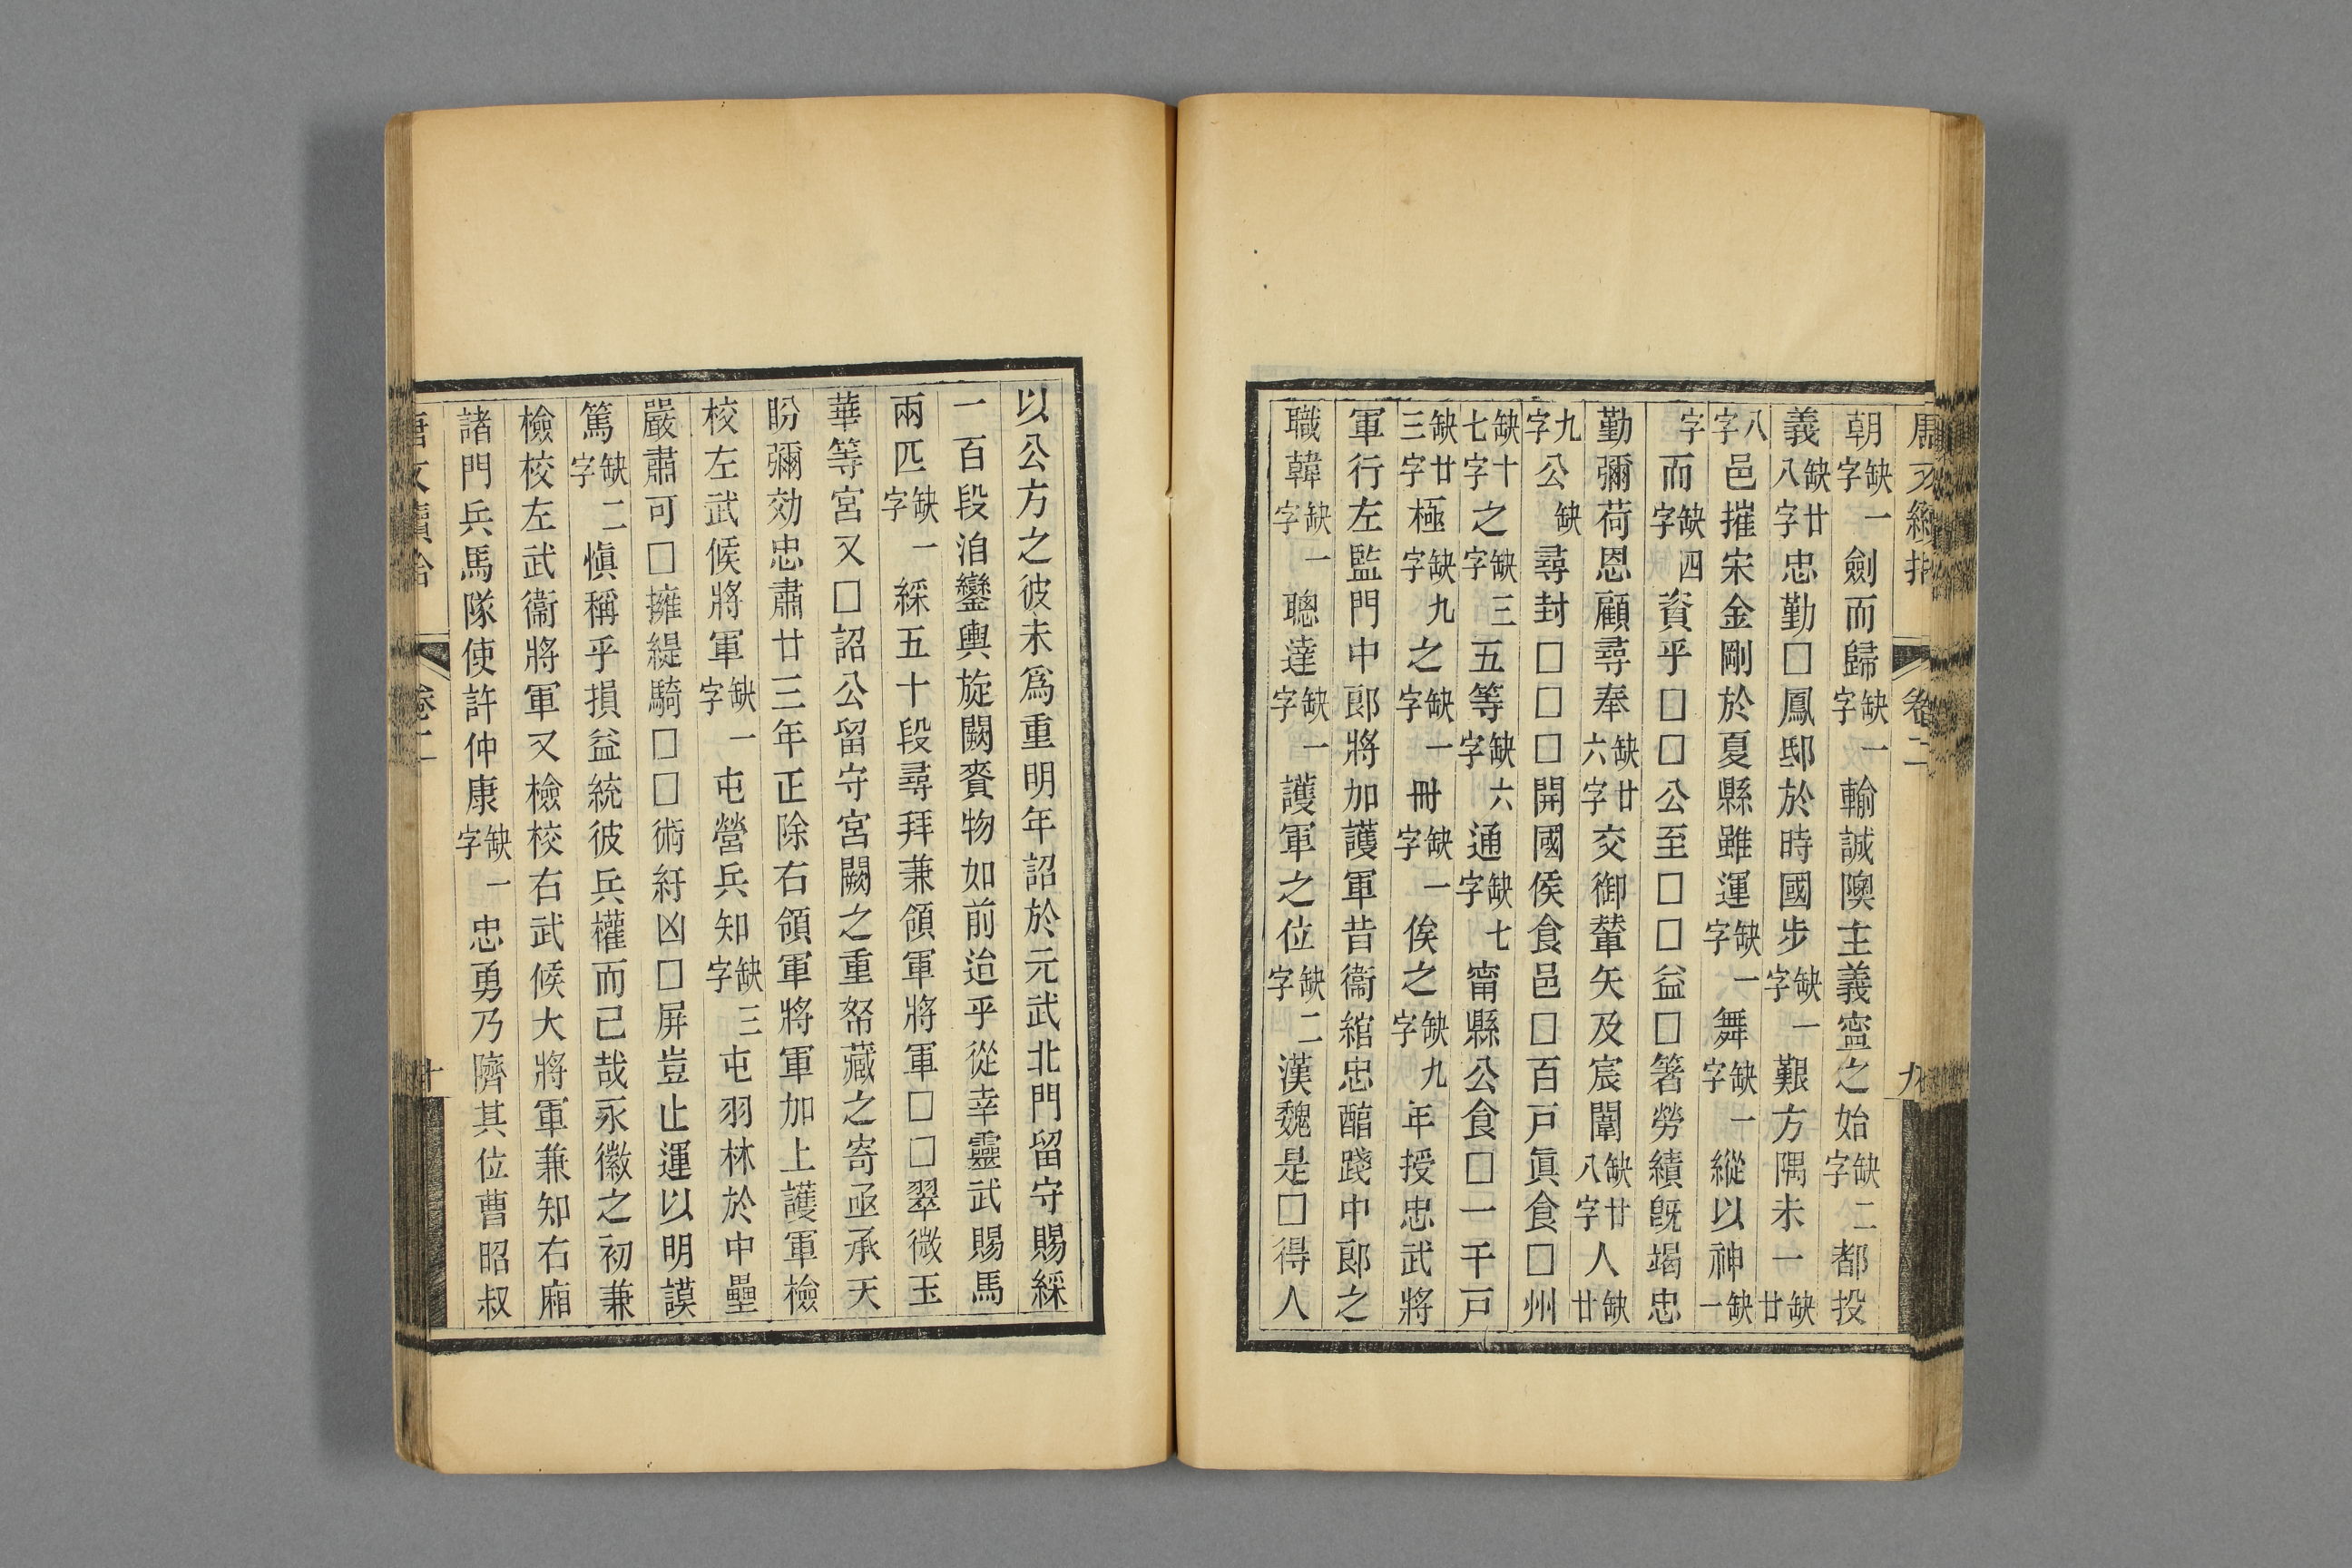 唐文續拾 卷二 九
朝缺一字劍而歸缺一字輸誠隩主義寍之始缺二字都投
義缺廿八字忠勤□鳳邸於時國步缺一字艱方隅未一缺廿
八字邑摧宋金剛於夏縣雖運缺一字舞缺一字縱以神缺一
字而缺四字資乎□□公至□□益□箸勞績旣竭忠
勤彌荷恩顧尋奉缺廿六字交御輦矢及宸闈缺廿八字人缺廿
九字公缺尋封□□□開國侯食邑□百戸眞食□州
缺十七字之缺三字五等缺六字通缺七字甯縣公食□一千戸
缺廿三字極缺九字之缺一字冊缺一字俟之缺九字年授忠武將
軍行左監門中郎將加護軍昔衞綰忠醇踐中郎之
職韓缺一字聰達缺一字護軍之位缺二字漢魏是□得人
以公方之彼未爲重明年詔於元武北門留守賜綵
一百段洎鑾輿旋闕賚物如前迨乎從幸靈武賜馬
兩匹缺一字綵五十段尋拜兼領軍將軍□□翠微玉
華等宮又□詔公留守宮闕之重帑藏之寄亟承天
盼彌効忠肅廿三年正除右領軍將軍加上護軍檢
校左武候將軍缺一字屯營兵知缺三字屯羽林於中壘
嚴肅可□擁緹騎□□術紆凶□屏豈止運以明謨
篤缺二字愼稱乎損益統彼兵權而已哉永徽之初兼
檢校左武衞將軍又檢校右武候大將軍兼知右廂
諸門兵馬隊使許仲康缺一字忠勇乃隮其位曹昭叔
唐文續拾 卷二 十